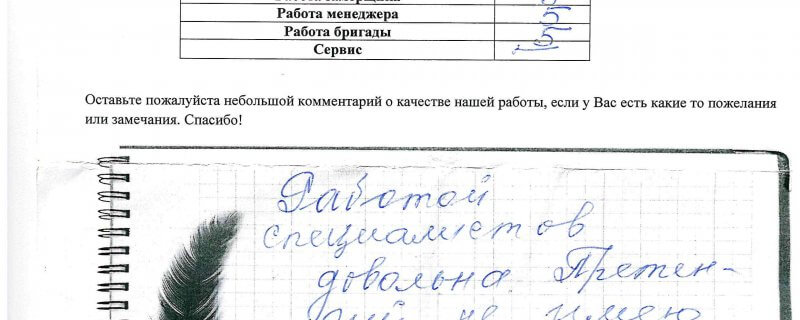 Работа менеджера 5
Работа бригады 5
Сервис 5
Оставьте пожалуйста небольшой комментарий о качестве нашей работы, если у Вас есть какие то пожелания
или замечания. Спасибо!
Работой
специалистов
довольна. Претен-
зий не имею